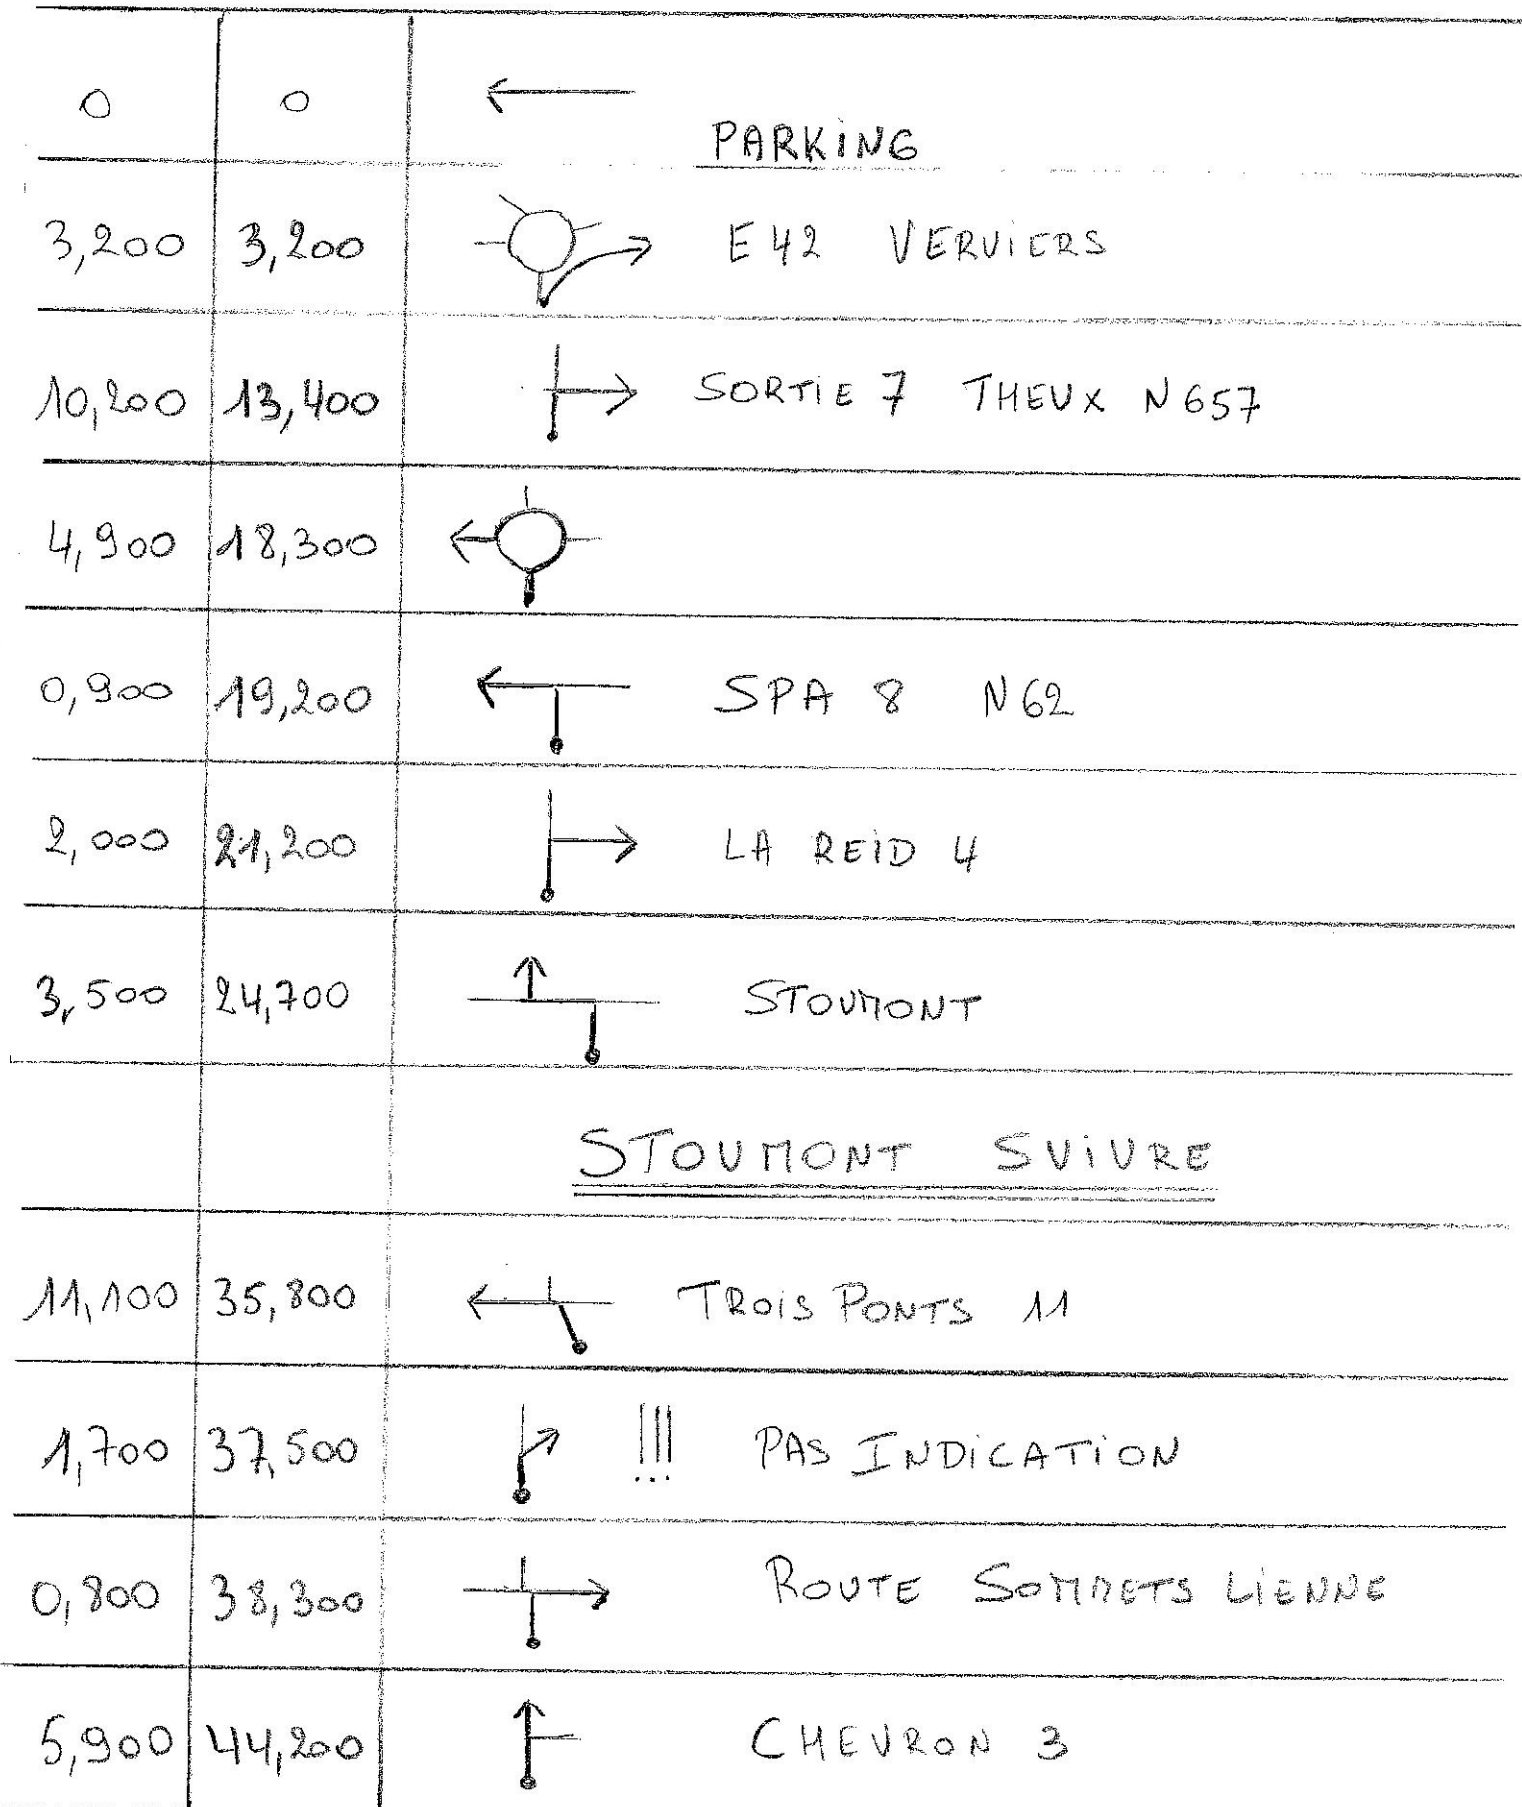 0 0 PARKING
3,200 3,200 E42 VERVIERS
10,200 13,400 SORTIE 7 THEUX N657
4,900 18,300
0,900 19,200 SPA 8 N62
2,000 21,200 LA REID 4
3,500 24,700 STOUMONT
STOUMONT SUIVRE
11,100 35,800 TROIS PONTS 11
1,700 37,500 !!! PAS INDICATION
0,800 38,300 ROUTE SOMMETS LIENNE
5,900 44,200 CHEVRON 3